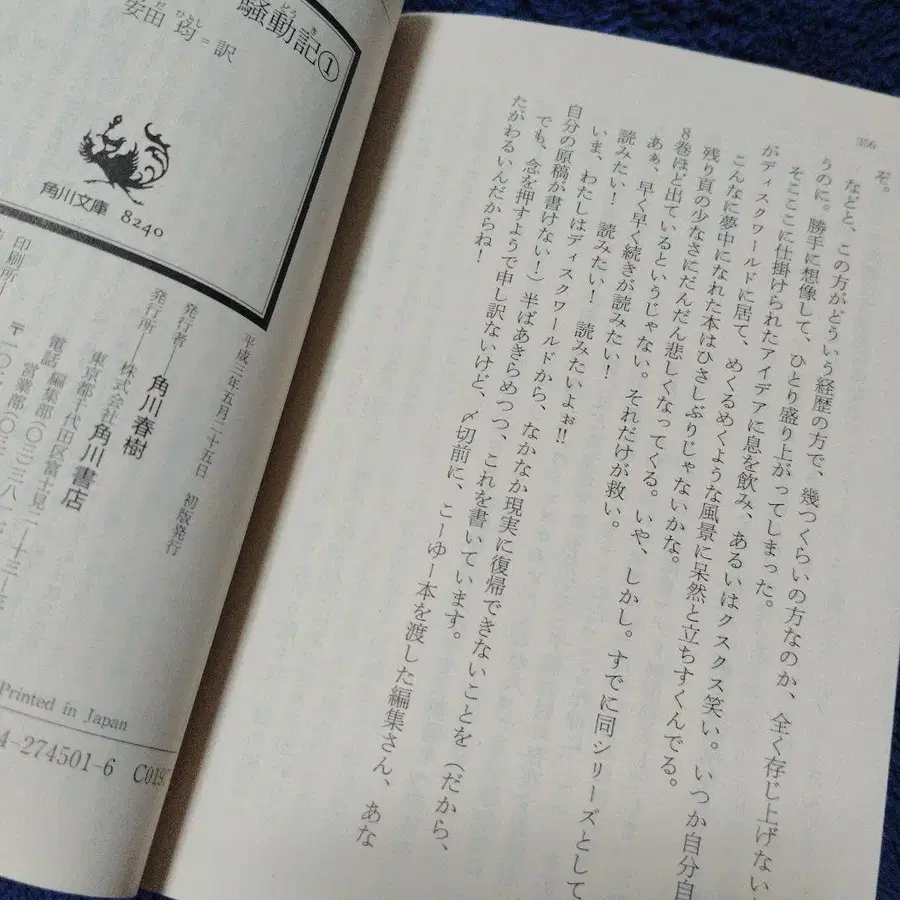 306
ぞ。
などと、この方がどういう経歴の方で、幾つくらいの方なのか、全く存じ上げない
うのに。勝手に想像して、ひとり盛り上がってしまった。
そこここに仕掛けられたアイデアに息を飲み、あるいはクスクス笑い。いつか自分自
がディスクワールドに居て、めくるめくような風景に呆然と立ちすくんでる。
こんなに夢中になれた本はひさしぶりじゃないかな。
残り頁の少なさにだんだん悲しくなってくる。いや、しかし。すでに同シリーズとして
8巻ほど出ているというじゃない。それだけが救い。
あぁ、早く早く続きが読みたい!
読みたい! 読みたい! 読みたいよぉ!!
いま、わたしはディスクワールドから、なかなか現実に復帰できないことを(だから、
自分の原稿が書けない!)半ばあきらめつつ、これを書いています。
でも、念を押すようで申し訳ないけど、〆切前に、こーゆー本を渡した編集さん、あな
たがわるいんだからね!
騒動記①
安田均=訳
角川文庫 8240
平成三年五月二十五日 初版発行
発行者―角川春樹
発行所―株式会社角川書店
東京都千代田区富士見二―十三―
電話 編集部(〇三)三八一七
営業部(〇三
〒一〇二
印刷所
Printed in Japan
4-274501-6 C019